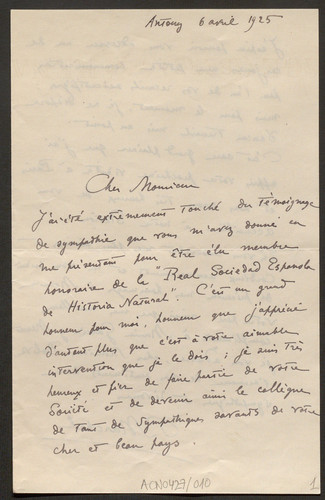 Antony 6 avril 1925
Cher Monsieur
J'ai été extrêmement touché du témoignage
de sympathie que vous m'avez donné en
me présentant pour être élu membre
honoraire de la "Real Sociedad Espanola
de Historia Natural". C'est un grand
honneur pour moi, honneur que j'apprécie
d'autant plus que c'est à votre aimable
intervention que je le dois ; je suis très
heureux et fier de faire partie de votre
Société et de devenir ainsi le collègue
de tant de sympathiques savants de votre
cher et beau pays.
ACN0427/010
1